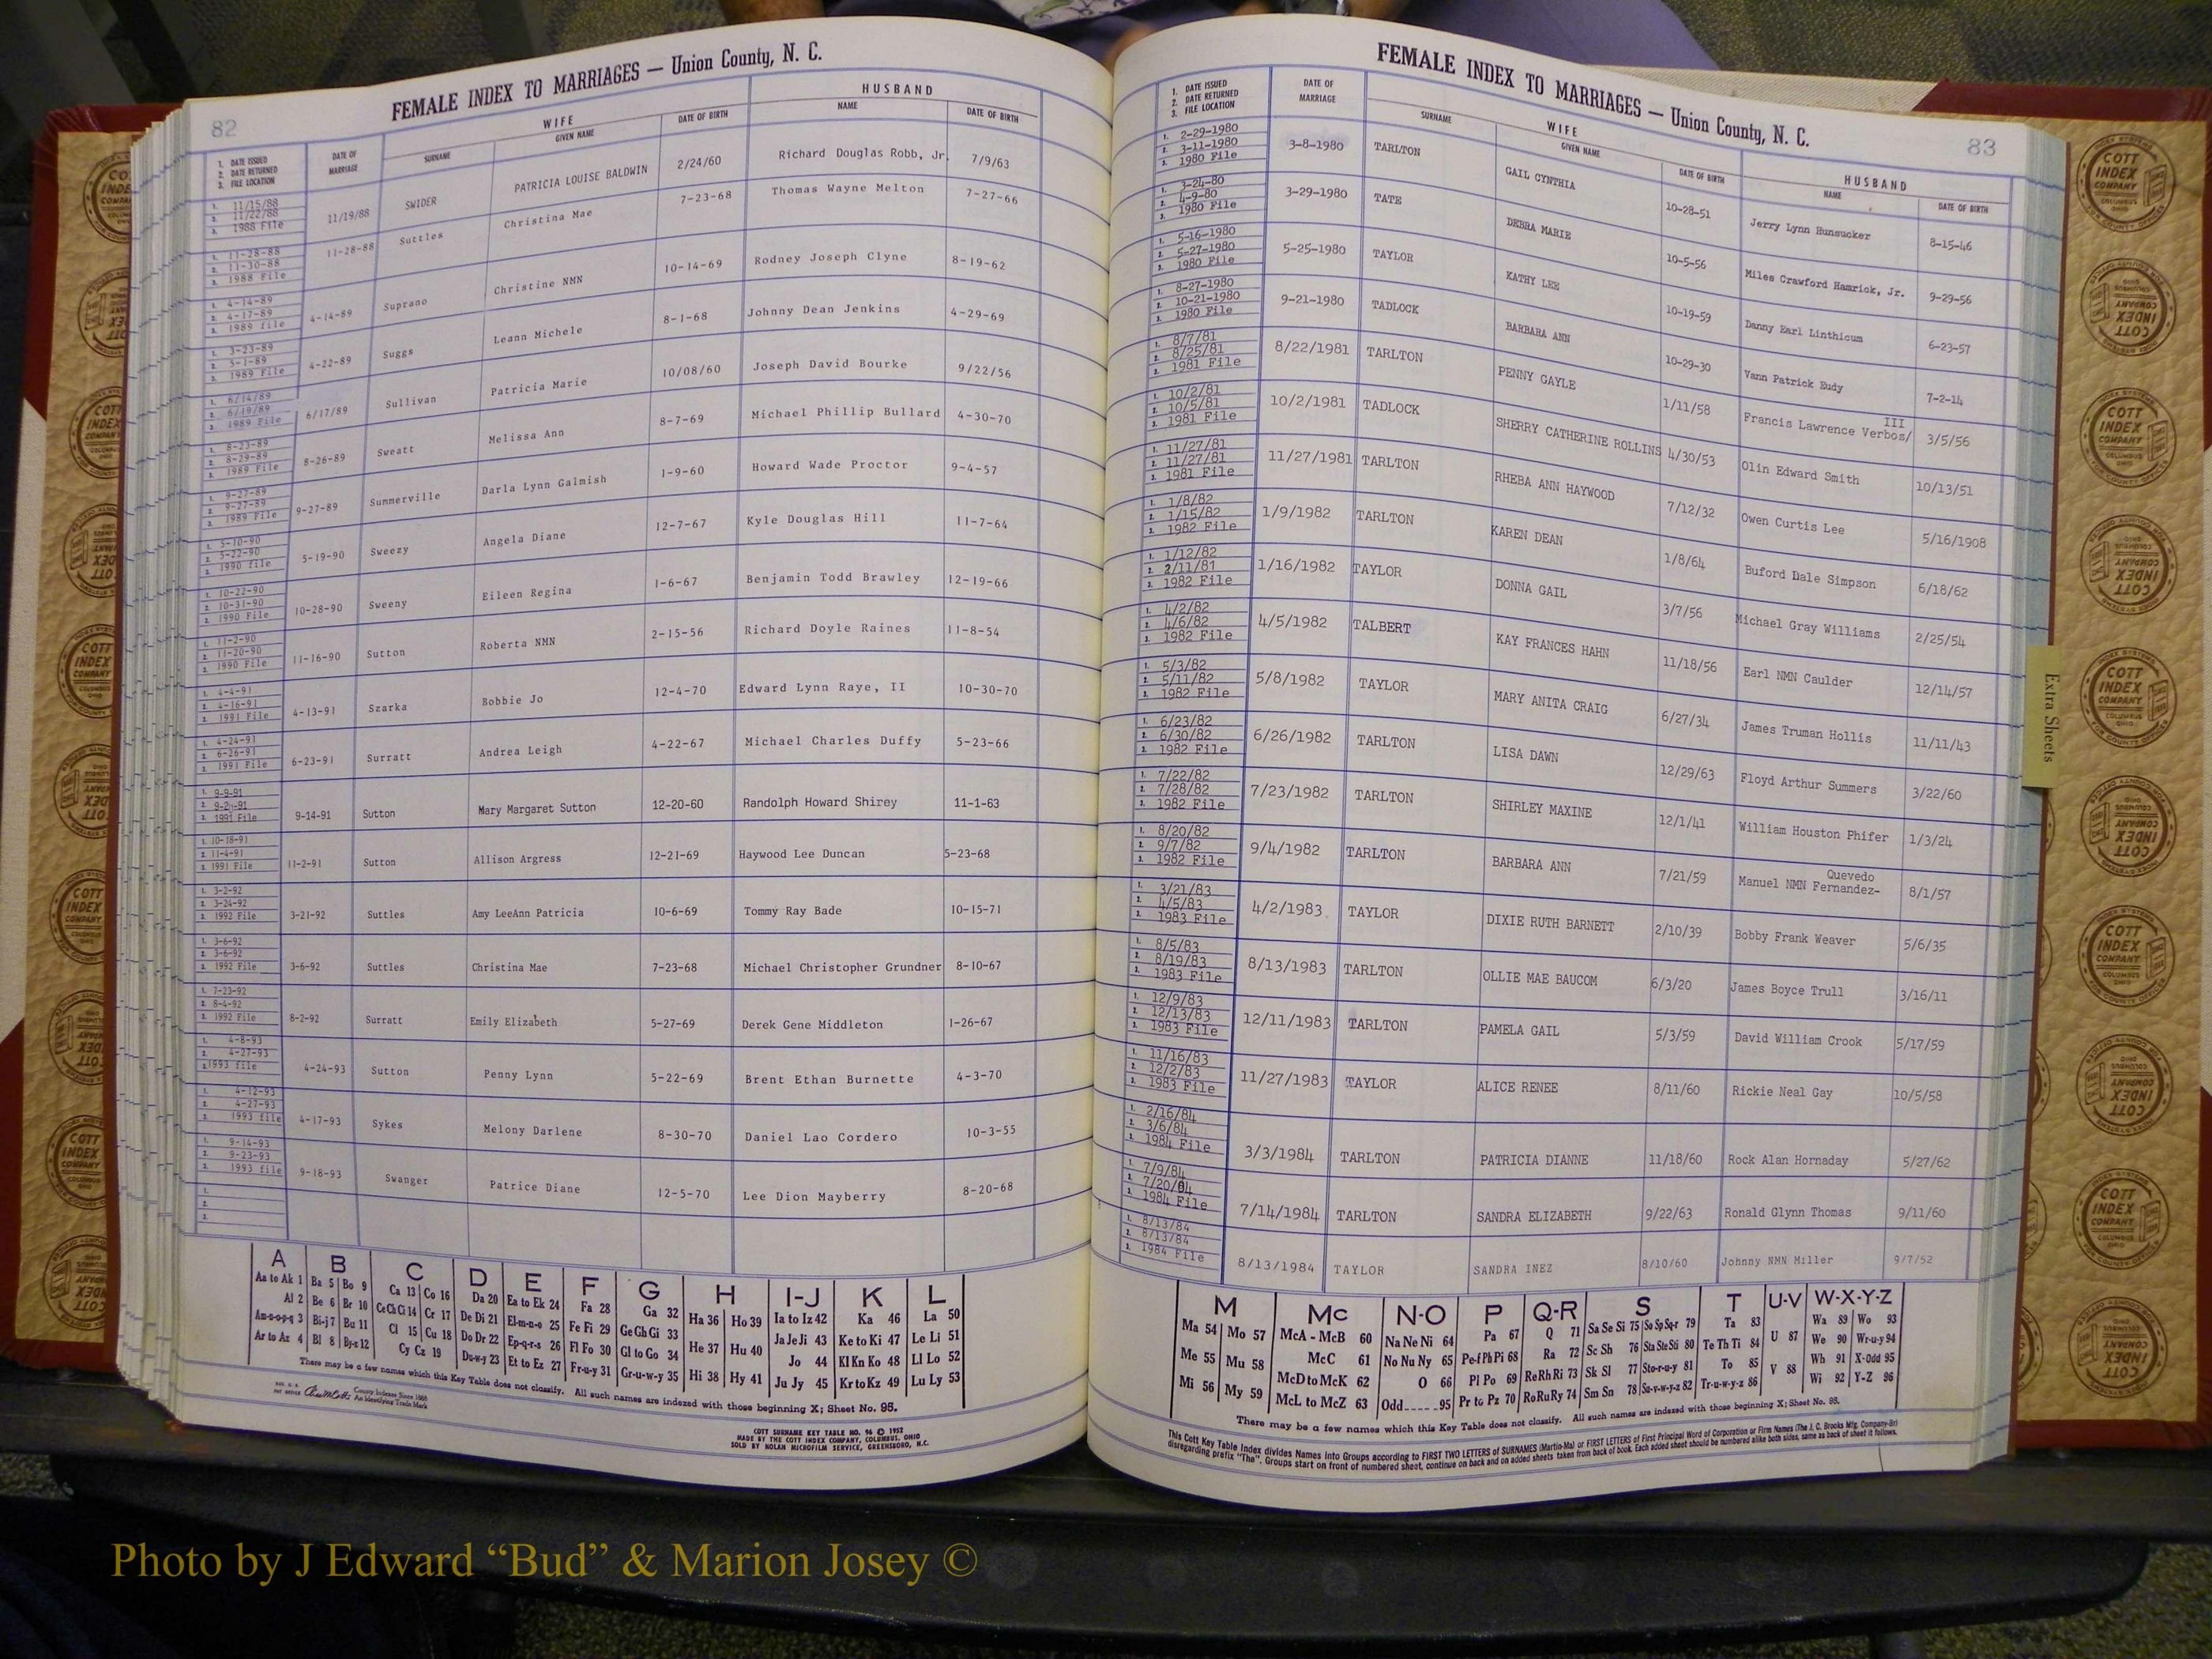 82
FEMALE INDEX TO MARRIAGES — Union County, N. C.
1. DATE ISSUED 2. DATE RETURNED 3. FILE LOCATION | DATE OF MARRIAGE | WIFE SURNAME | GIVEN NAME | DATE OF BIRTH | HUSBAND NAME | DATE OF BIRTH
1. 11/15/88 2. 11/22/88 3. 1988 File 11/19/88 SWIDER PATRICIA LOUISE BALDWIN 2/24/60 Richard Douglas Robb, Jr. 7/9/63
1. 11-28-88 2. 11-30-88 3. 1988 File 11-28-88 Suttles Christina Mae 7-23-68 Thomas Wayne Melton 7-27-66
1. 4-14-89 2. 4-17-89 3. 1989 file 4-14-89 Suprano Christine NMN 10-14-69 Rodney Joseph Clyne 8-19-62
1. 3-23-89 2. 5-1-89 3. 1989 File 4-22-89 Suggs Leann Michele 8-1-68 Johnny Dean Jenkins 4-29-69
1. 6/14/89 2. 6/19/89 3. 1989 File 6/17/89 Sullivan Patricia Marie 10/08/60 Joseph David Bourke 9/22/56
1. 8-23-89 2. 8-29-89 3. 1989 File 8-26-89 Sweatt Melissa Ann 8-7-69 Michael Phillip Bullard 4-30-70
1. 9-27-89 2. 9-27-89 3. 1989 File 9-27-89 Summerville Darla Lynn Galmish 1-9-60 Howard Wade Proctor 9-4-57
1. 5-10-90 2. 5-22-90 3. 1990 file 5-19-90 Sweezy Angela Diane 12-7-67 Kyle Douglas Hill 11-7-64
1. 10-22-90 2. 10-31-90 3. 1990 File 10-28-90 Sweeny Eileen Regina 1-6-67 Benjamin Todd Brawley 12-19-66
1. 11-2-90 2. 11-20-90 3. 1990 File 11-16-90 Sutton Roberta NMN 2-15-56 Richard Doyle Raines 11-8-54
1. 4-4-91 2. 4-16-91 3. 1991 File 4-13-91 Szarka Bobbie Jo 12-4-70 Edward Lynn Raye, II 10-30-70
1. 4-24-91 2. 6-26-91 3. 1991 File 6-23-91 Surratt Andrea Leigh 4-22-67 Michael Charles Duffy 5-23-66
1. 9-9-91 2. 3. 1991 File 9-14-91 Sutton Mary Margaret Sutton 12-20-60 Randolph Howard Shirey 11-1-63
1. 10-18-91 2. 11-4-91 3. 1991 File 11-2-91 Sutton Allison Argress 12-21-69 Haywood Lee Duncan 5-23-68
1. 3-2-92 2. 3-24-92 3. 1992 File 3-21-92 Suttles Amy LeeAnn Patricia 10-6-69 Tommy Ray Bade 10-15-71
1. 3-6-92 2. 3-6-92 3. 1992 File 3-6-92 Suttles Christina Mae 7-23-68 Michael Christopher Grundner 8-10-67
1. 7-23-92 2. 8-4-92 3. 1992 File 8-2-92 Surratt Emily Elizabeth 5-27-69 Derek Gene Middleton 1-26-67
1. 4-8-93 2. 4-27-93 3. 1993 file 4-24-93 Sutton Penny Lynn 5-22-69 Brent Ethan Burnette 4-3-70
1. 4-12-93 2. 4-27-93 3. 1993 file 4-17-93 Sykes Melony Darlene 8-30-70 Daniel Lao Cordero 10-3-55
1. 9-14-93 2. 9-23-93 3. 1993 file 9-18-93 Swanger Patrice Diane 12-5-70 Lee Dion Mayberry 8-20-68
1. 2. 3.
A B C D E F G H I-J K L
Aa to Ak 1 Ba 5 Bo 9 Ca 13 Co 16 Da 20 Ea to Ek 24 Fa 28 Ga 32 Ha 36 Ho 39 Ia to Iz 42 Ka 46 La 50
Al 2 Be 6 Br 10 Ce Ch Ci 14 Cr 17 De Di 21 El-m-n-o 25 Fe Fi 29 Ge Gh Gi 33 He 37 Hu 40 Ja Je Ji 43 Ke to Ki 47 Le Li 51
Am-n-o-p-q 3 Bi-j 7 Bu 11 Cl 15 Cu 18 Do Dr 22 Ep-q-r-s 26 Fl Fo 30 Gl to Go 34 Hi 38 Hy 41 Jo 44 Kl Kn Ko 48 Ll Lo 52
Ar to Az 4 Bl 8 By-z 12 Cy Cz 19 Du-w-y 23 Et to Ez 27 Fr-u-y 31 Gr-u-w-y 35 Ju Jy 45 Kr to Kz 49 Lu Ly 53
There may be a few names which this Key Table does not classify. All such names are indexed with those beginning X; Sheet No. 95.
County Indexes Since 1888
An Identifying Trade Mark
COTT SURNAME KEY TABLE NO. 96 © 1952
MADE BY THE COTT INDEX COMPANY, COLUMBUS, OHIO
SOLD BY NOLAN MICROFILM SERVICE, GREENSBORO, N.C.
FEMALE INDEX TO MARRIAGES — Union County, N. C.
83
1. DATE ISSUED 2. DATE RETURNED 3. FILE LOCATION | DATE OF MARRIAGE | WIFE SURNAME | GIVEN NAME | DATE OF BIRTH | HUSBAND NAME | DATE OF BIRTH
1. 2-29-1980 2. 3-11-1980 3. 1980 File 3-8-1980 TARLTON GAIL CYNTHIA 10-28-51 Jerry Lynn Hunsucker 8-15-46
1. 3-24-80 2. 4-9-80 3. 1980 File 3-29-1980 TATE DEBRA MARIE 10-5-56 Miles Crawford Hamrick, Jr. 9-29-56
1. 5-16-1980 2. 5-27-1980 3. 1980 File 5-25-1980 TAYLOR KATHY LEE 10-19-59 Danny Earl Linthicum 6-23-57
1. 8-27-1980 2. 10-21-1980 3. 1980 File 9-21-1980 TADLOCK BARBARA ANN 10-29-30 Vann Patrick Eudy 7-2-14
1. 8/7/81 2. 8/25/81 3. 1981 File 8/22/1981 TARLTON PENNY GAYLE 1/11/58 Francis Lawrence Verbos/ III 3/5/56
1. 10/2/81 2. 10/5/81 3. 1981 File 10/2/1981 TADLOCK SHERRY CATHERINE ROLLINS 4/30/53 Olin Edward Smith 10/13/51
1. 11/27/81 2. 11/27/81 3. 1981 File 11/27/1981 TARLTON RHEBA ANN HAYWOOD 7/12/32 Owen Curtis Lee 5/16/1908
1. 1/8/82 2. 1/15/82 3. 1982 File 1/9/1982 TARLTON KAREN DEAN 1/8/64 Buford Dale Simpson 6/18/62
1. 1/12/82 2. 2/11/81 3. 1982 File 1/16/1982 TAYLOR DONNA GAIL 3/7/56 Michael Gray Williams 2/25/54
1. 4/2/82 2. 4/6/82 3. 1982 File 4/5/1982 TALBERT KAY FRANCES HAHN 11/18/56 Earl NMN Caulder 12/14/57
1. 5/3/82 2. 5/11/82 3. 1982 File 5/8/1982 TAYLOR MARY ANITA CRAIG 6/27/34 James Truman Hollis 11/11/43
1. 6/23/82 2. 6/30/82 3. 1982 File 6/26/1982 TARLTON LISA DAWN 12/29/63 Floyd Arthur Summers 3/22/60
1. 7/22/82 2. 7/28/82 3. 1982 File 7/23/1982 TARLTON SHIRLEY MAXINE 12/1/41 William Houston Phifer 1/3/24
1. 8/20/82 2. 9/7/82 3. 1982 File 9/4/1982 TARLTON BARBARA ANN 7/21/59 Manuel NMN Fernandez- Quevedo 8/1/57
1. 3/21/83 2. 4/5/83 3. 1983 File 4/2/1983 TAYLOR DIXIE RUTH BARNETT 2/10/39 Bobby Frank Weaver 5/6/35
1. 8/5/83 2. 8/19/83 3. 1983 File 8/13/1983 TARLTON OLLIE MAE BAUCOM 6/3/20 James Boyce Trull 3/16/11
1. 12/9/83 2. 12/13/83 3. 1983 File 12/11/1983 TARLTON PAMELA GAIL 5/3/59 David William Crook 5/17/59
1. 11/16/83 2. 12/2/83 3. 1983 File 11/27/1983 TAYLOR ALICE RENEE 8/11/60 Rickie Neal Gay 10/5/58
1. 2/16/84 2. 3/6/84 3. 1984 File 3/3/1984 TARLTON PATRICIA DIANNE 11/18/60 Rock Alan Hornaday 5/27/62
1. 7/9/84 2. 7/20/84 3. 1984 File 7/14/1984 TARLTON SANDRA ELIZABETH 9/22/63 Ronald Glynn Thomas 9/11/60
1. 8/13/84 2. 8/13/84 3. 1984 File 8/13/1984 TAYLOR SANDRA INEZ 8/10/60 Johnny NMN Miller 9/7/52
M Mc N-O P Q-R S T U-V W-X-Y-Z
Ma 54 Mo 57 McA - McB 60 Na Ne Ni 64 Pa 67 Q 71 Sa Se Si 75 So Sp Sq-r 79 Ta 83 U 87 Wa 89 Wo 93
Me 55 Mu 58 McC 61 No Nu Ny 65 Pe-f Ph Pi 68 Ra 72 Sc Sh 76 Sta Ste Sti 80 Te Th Ti 84 V 88 We 90 Wr-u-y 94
Mi 56 My 59 McD to McK 62 O 66 Pl Po 69 Re Rh Ri 73 Sk Sl 77 Sto-r-u-y 81 To 85 Wh 91 X-Odd 95
McL to McZ 63 Odd_____95 Pr to Pz 70 Ro Ru Ry 74 Sm Sn 78 Su-v-w-y-z 82 Tr-u-w-y-z 86 Wi 92 Y-Z 96
There may be a few names which this Key Table does not classify. All such names are indexed with those beginning X; Sheet No. 95.
This Cott Key Table Index divides Names into Groups according to FIRST TWO LETTERS of SURNAMES (Martin-Ma) or FIRST LETTERS of First Principal Word of Corporation or Firm Names (The J. C. Brooks Mfg. Company-Br)
disregarding prefix "The". Groups start on front of numbered sheet, continue on back and on added sheets taken from back of book. Each added sheet should be numbered alike both sides, same as back of sheet it follows.
Extra Sheets
COTT INDEX COMPANY COLUMBUS OHIO
Photo by J Edward “Bud” & Marion Josey ©